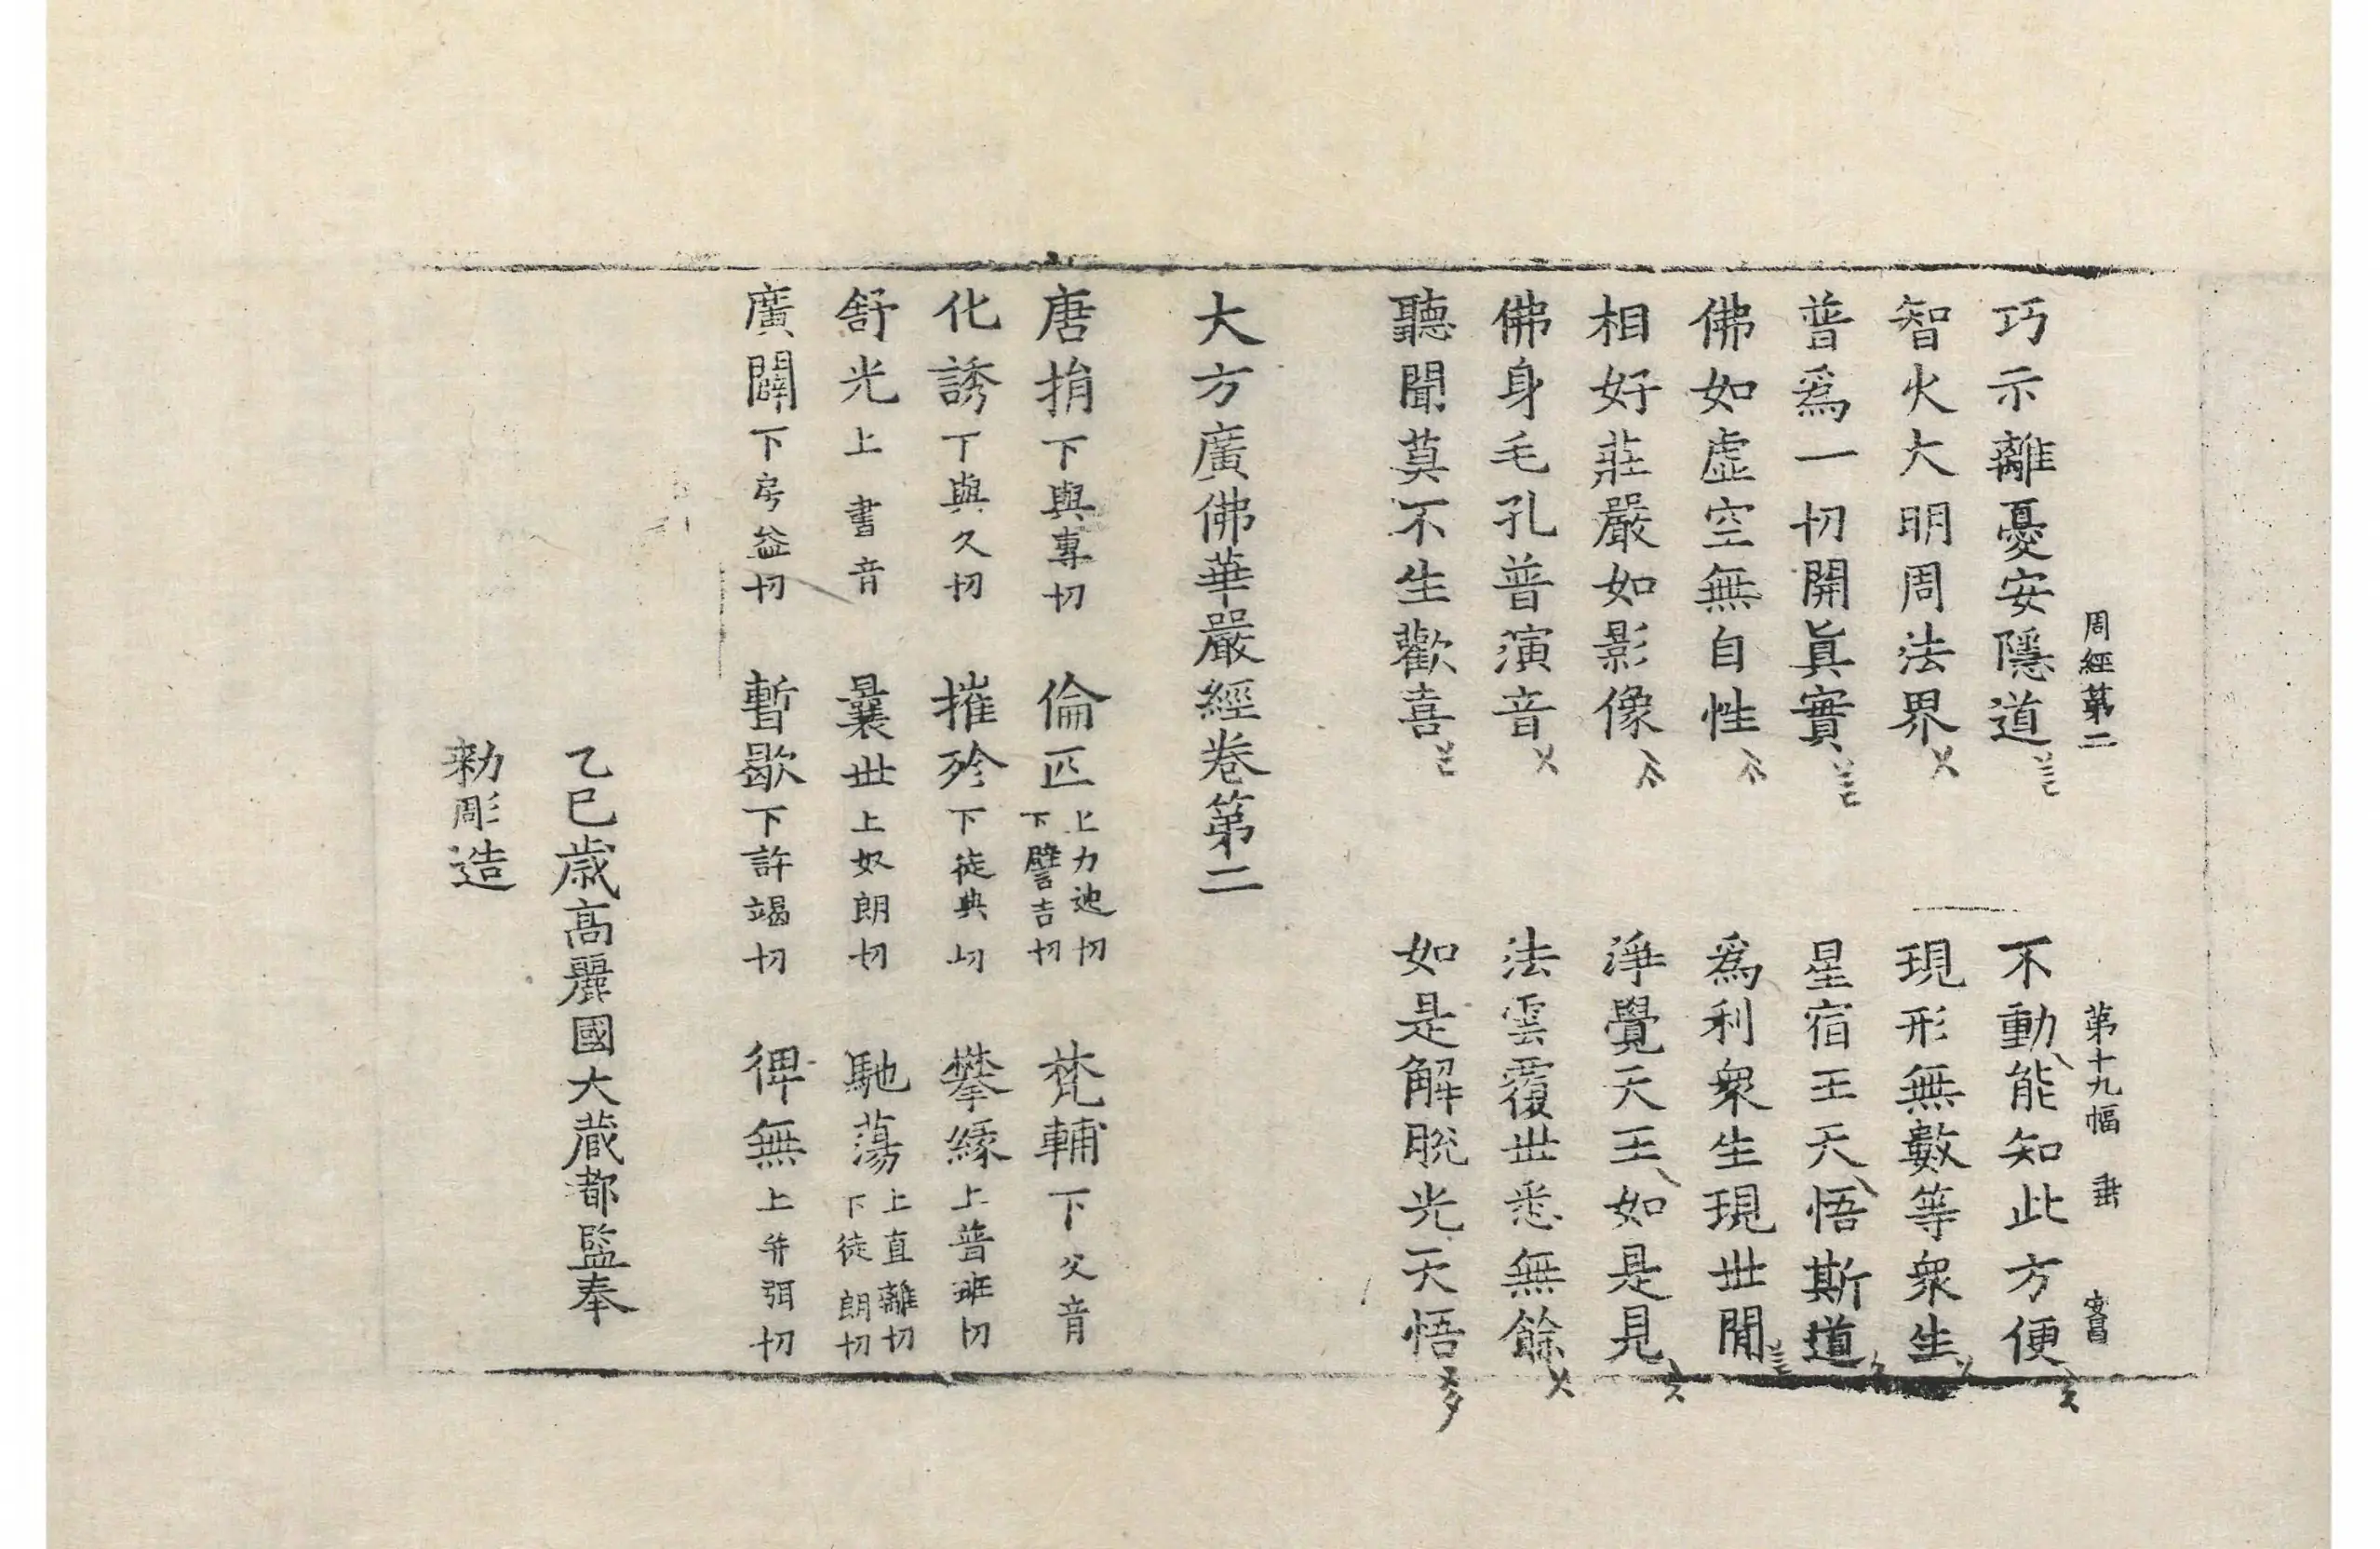 周經第二 第十九幅 垂
巧示離憂安隱道 不動能知此方便
智火大明周法界 現形無數等衆生
普爲一切開眞實 星宿王天悟斯道
佛如虛空無自性 爲利衆生現世閒
相好莊嚴如影像 淨覺天王如是見
佛身毛孔普演音 法雲覆世悉無餘
聽聞莫不生歡喜 如是解脫光天悟
大方廣佛華嚴經卷第二
唐捐下與專切 倫匹上力迍切下譬吉切 梵輔下父音
化誘丁與久切 摧殄下徒典切 攀緣上普班切
舒光上書音 曩世上奴朗切 馳蕩上直離切下徒朗切
廣闢下房益切 暫歇下許竭切 俾無上并弭切
乙巳歲高麗國大藏都監奉
勑彫造